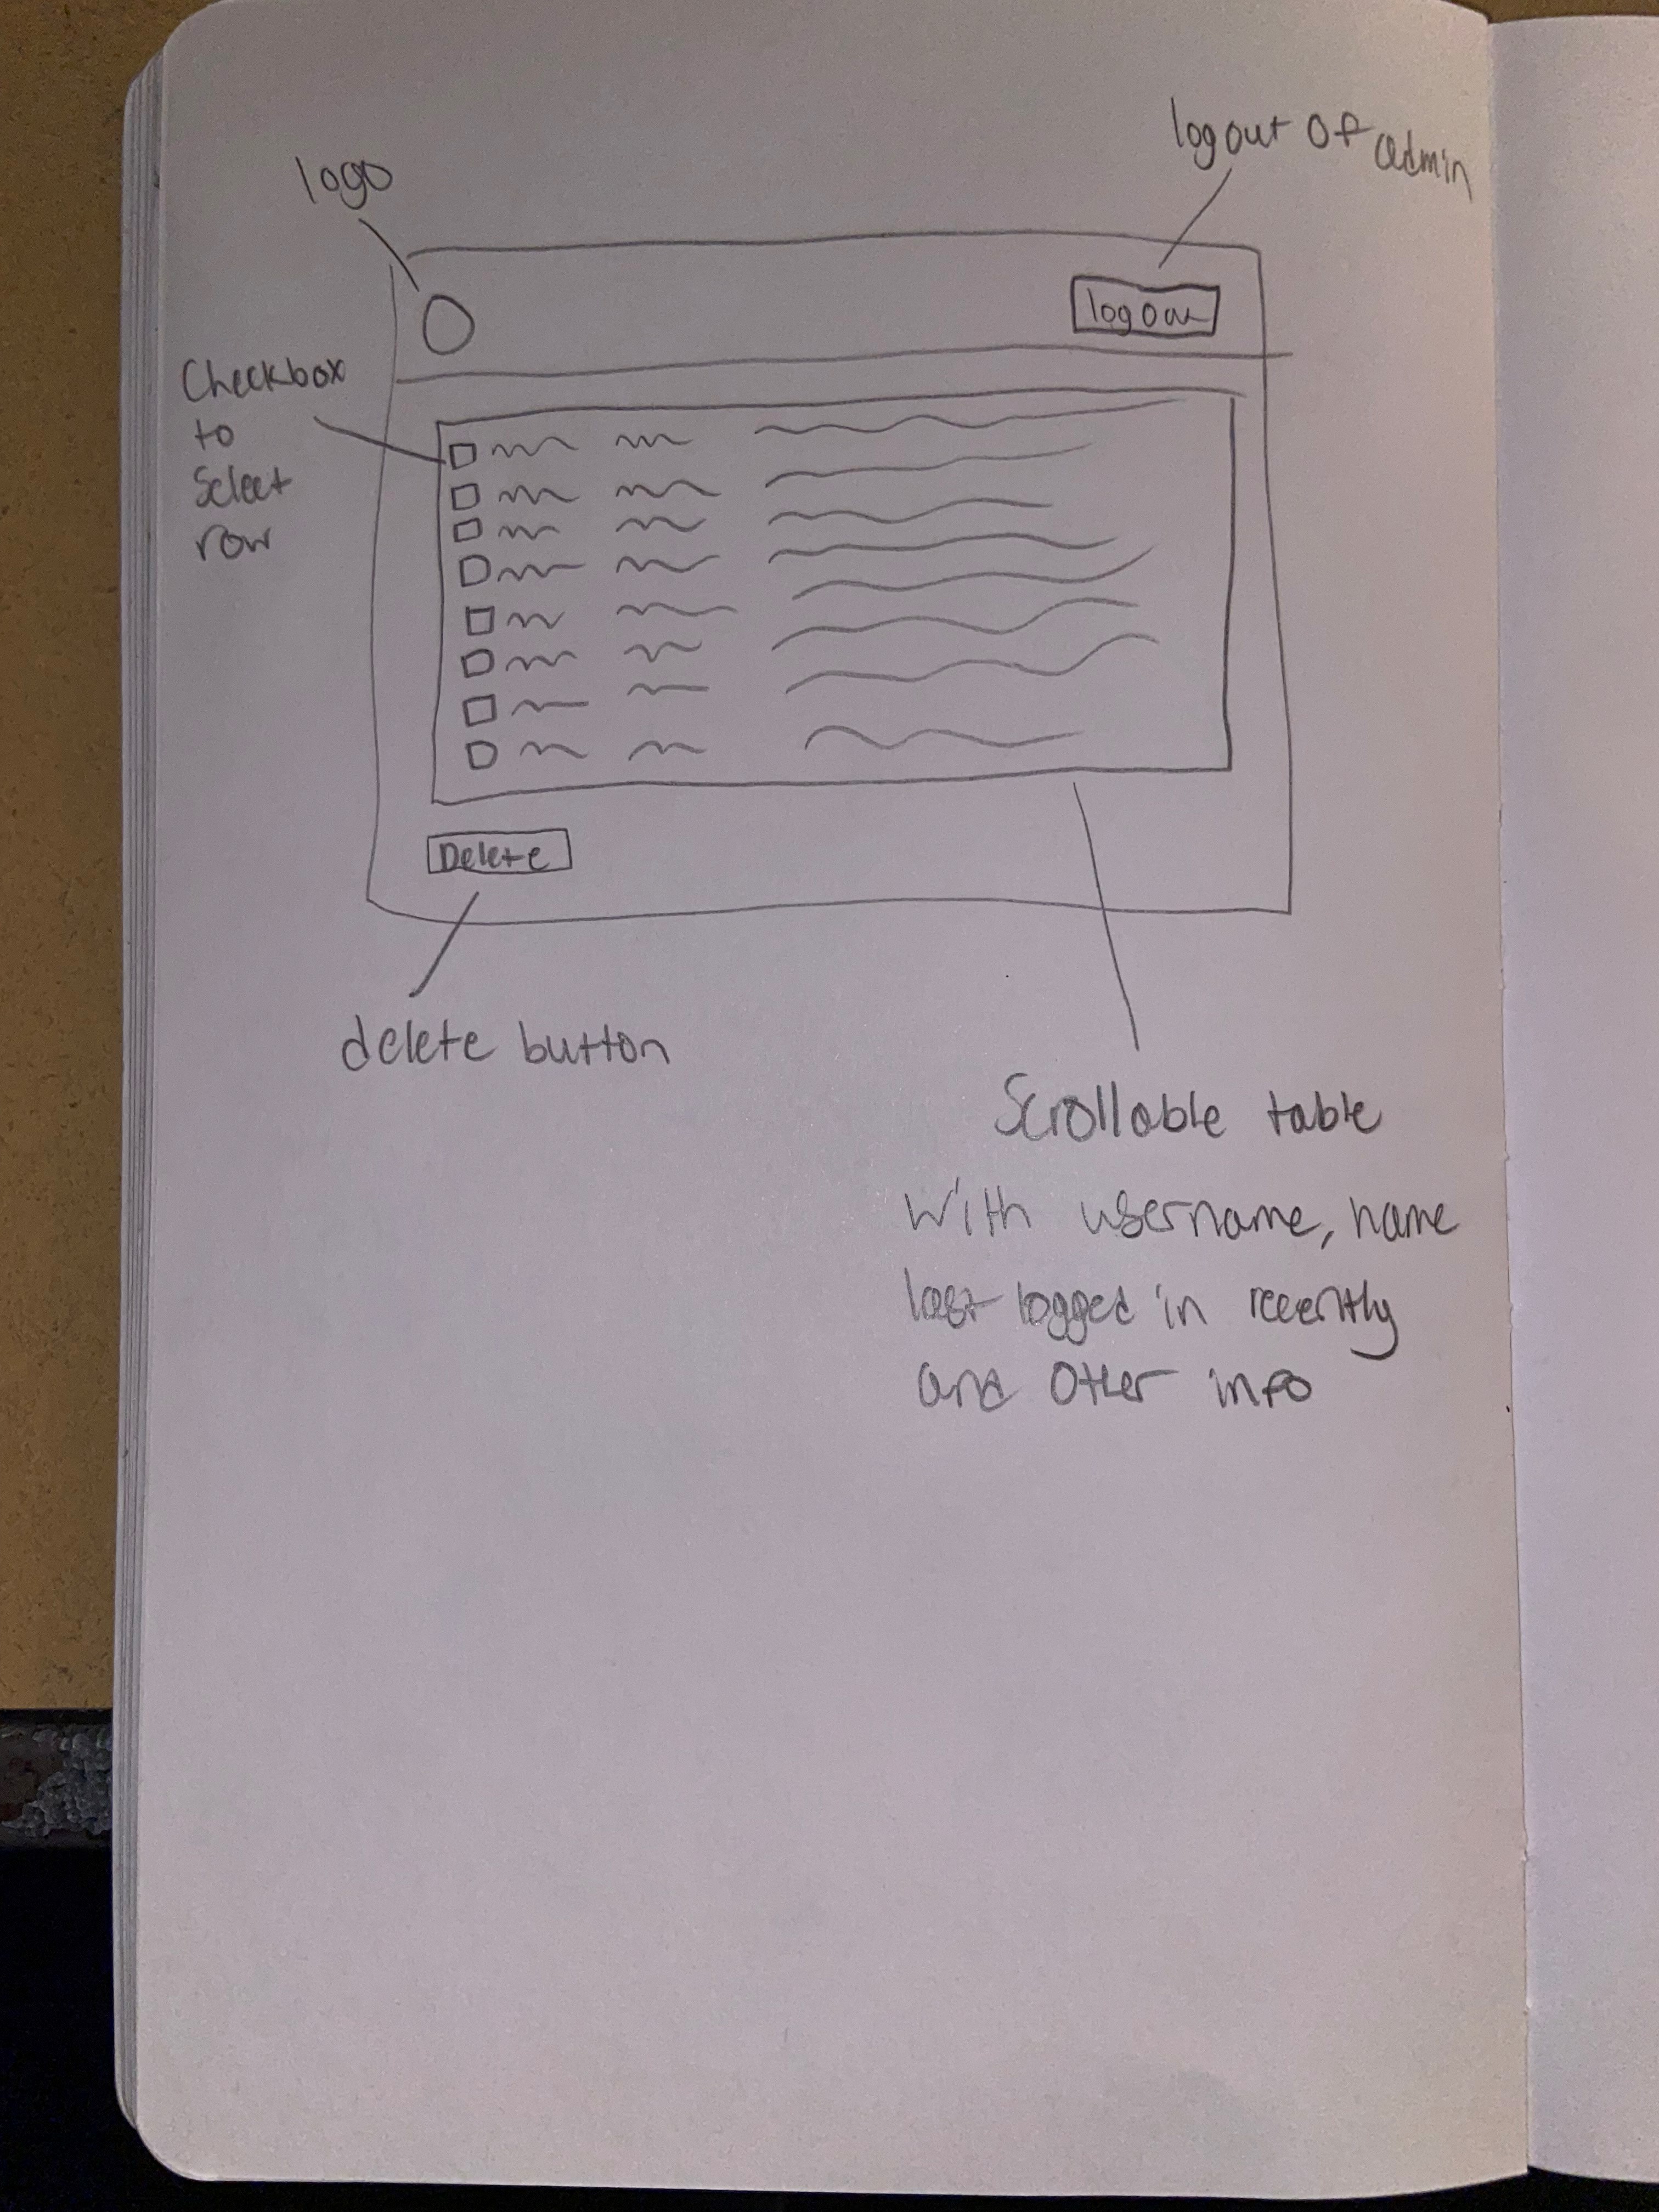 logout of admin
logo
logout
Checkbox
to
Select
row
Delete
delete button
Scrollable table
With username, name
last logged in recently
and other info